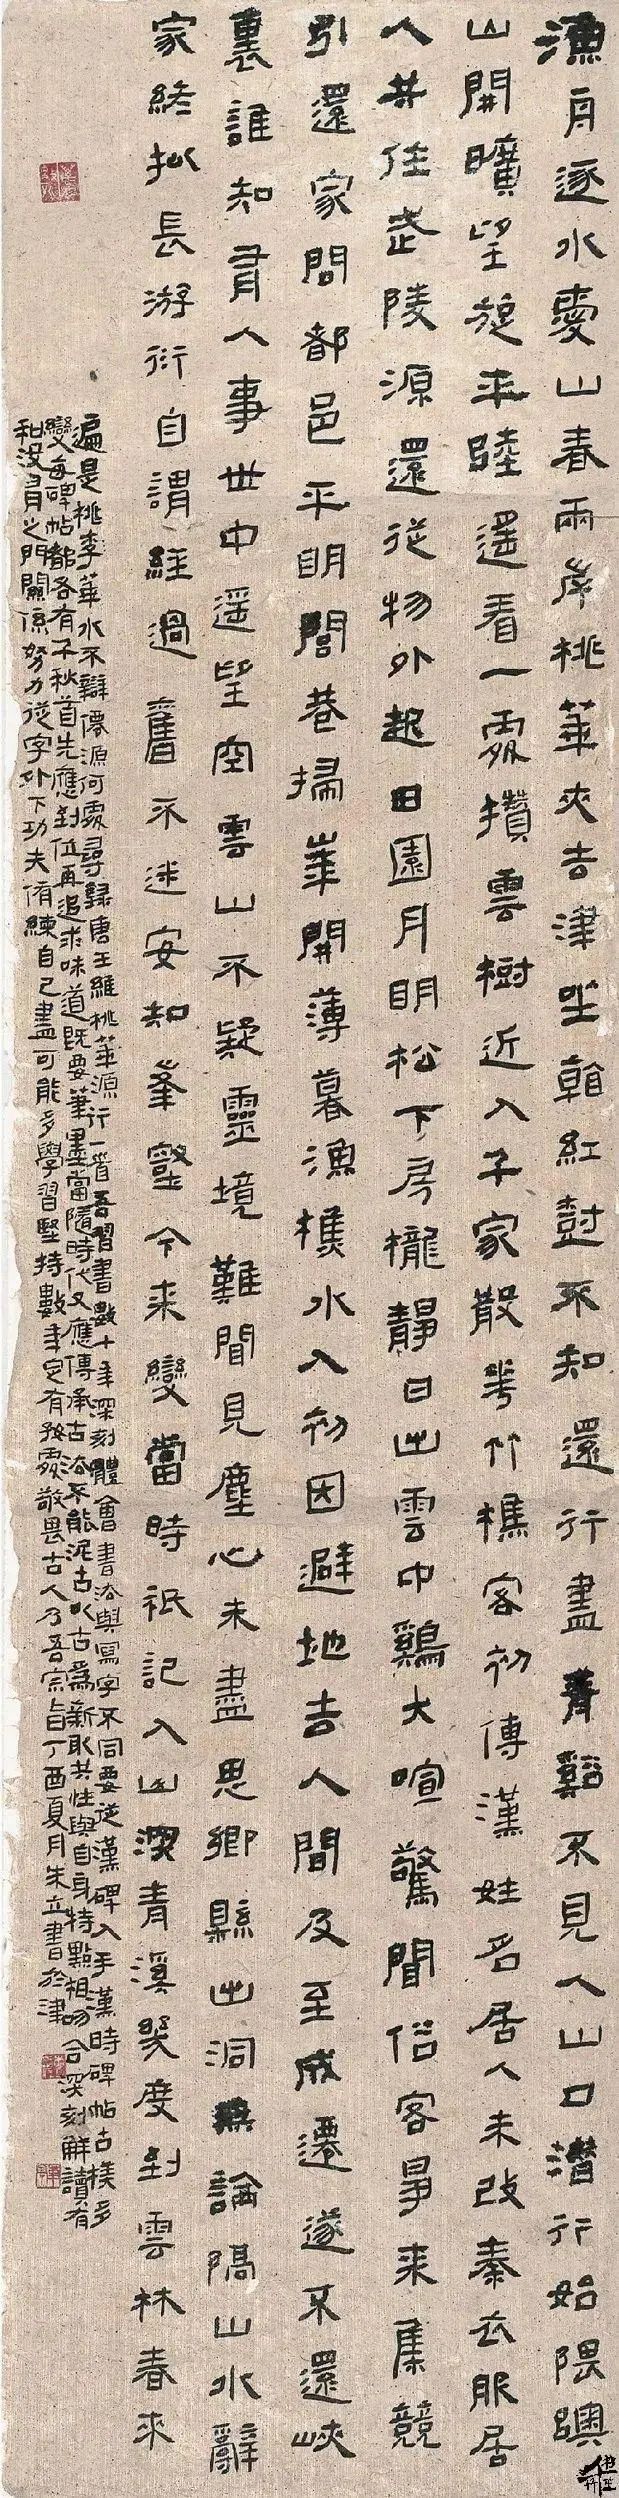 漁舟逐水愛山春兩岸桃華夾去津坐看紅樹不知還行盡青谿不見人山口潛行始隈隩
山開曠望旋平陸遥看一處攢雲樹近入千家散花竹樵客初傳漢姓名居人未改秦衣服居
人共住武陵源還從物外起田園月明松下房櫳靜日出雲中鷄犬喧驚聞俗客爭来集競
引還家問都邑平明閭巷掃華開薄暮漁樵水入初因避地去人間及至成遷遂不還峽
裏誰知有人事世中遥望空雲山不疑靈境難聞見塵心未盡思鄉縣出洞無論隔山水辭
家終拟長游衍自謂經過舊不迷安知峯壑今来變當時衹記入山深青溪幾度到雲林春来
遍是桃李華水不辯僊源何處尋録唐王維桃華源行一首吾習書數十年深刻體會書法與寫字不同要從漢碑入手漢時碑帖古樸多
變每碑帖都各有千秋首先應到位再追求味道既要筆墨當隨時代又應傳承古法不能泥古以古爲新取共性與自身特點相吻合深刻解讀有
和没有之門關係努力從字外下功夫脩練自己盡可能多學習堅持數年定有好處敬畏古人乃吾宗旨丁酉夏月朱立書於津